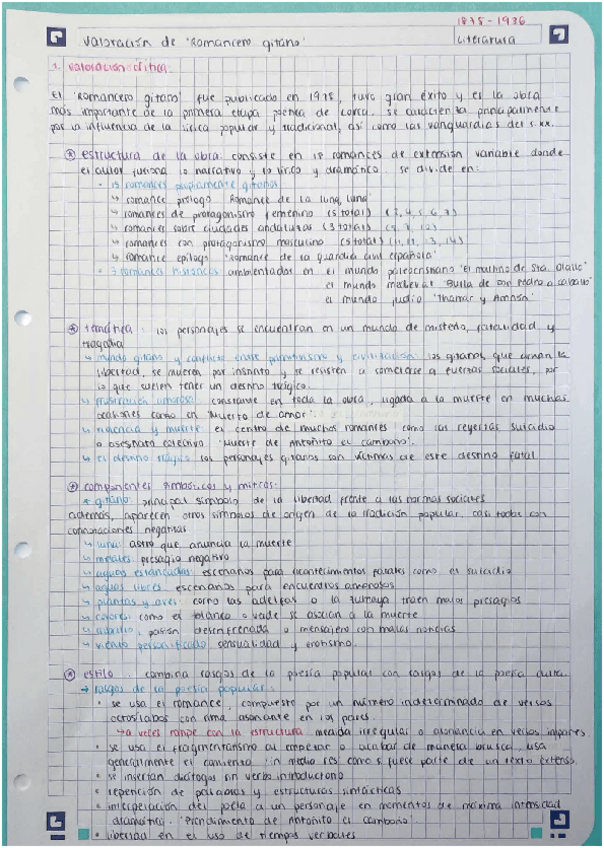 1875-1936
Valoración de "Romancero gitano"
Literatura
1. Valoración crítica:
El "Romancero gitano" fue publicado en 1928, tuvo gran éxito y es la obra
más importante de la primera etapa poética de Lorca. se caracteriza principalmente
por la influencia de la lírica popular y tradicional, así como las vanguardias del s.XX.
estructura de la obra: consiste en 18 romances de extensión variable donde
el autor fusiona lo narrativo y lo lírico y dramático. se divide en:
15 romances propiamente gitanos
↳ romance prólogo "Romance de la luna, luna"
↳ romances de protagonismo femenino (5 total)
↳ romances sobre ciudades andaluzas (3 total)
↳ romances con protagonismo masculino (5 total)
↳ romance epílogo "Romance de la guardia civil española"
3 romances históricos ambientados en el mundo paleocristiano "El martirio de Sta. Olalla"
el mundo medieval "Burla de Don Pedro a caballo"
el mundo judío "Thamar y Amnón"
temática: los personajes se encuentran en un mundo de misterio, fatalidad y
tragedia
↳ mundo gitano y conflicto entre primitivismo y civilización: los gitanos, que aman la
libertad, se mueven por instinto y se resisten a someterse a fuerzas sociales, por
lo que suelen tener un destino trágico.
↳ frustración amorosa: constante en toda la obra, ligada a la muerte en muchas
ocasiones como en "Muerto de amor".
↳ violencia y muerte: el centro de muchos romances como las reyertas, suicidio
o asesinato colectivo "Muerte de Antoñito el camborio".
↳ el destino trágico: los personajes gitanos son víctimas de este destino fatal
componentes simbólicos y míticos:
gitano: principal símbolo de la libertad frente a las normas sociales
además, aparecen otros símbolos de origen de la tradición popular, casi todos con
connotaciones negativas
↳ luna: astro que anuncia la muerte
↳ metales: presagio negativo
↳ aguas estancadas: escenarios para acontecimientos fatales como el suicidio
↳ aguas libres: escenarios para encuentros amorosos
↳ plantas y aves: como las adelfas o la zumaya traen malos presagios
↳ colores: como el blanco o verde se asocian a la muerte
↳ caballo: pasión desenfrenada o mensajero con malas noticias
↳ viento personificado: sensualidad y erotismo.
estilo: combina rasgos de la poesía popular con rasgos de la poesía culta
→ rasgos de la poesía popular:
• se usa el romance, compuesto por un número indeterminado de versos
octosílabos con rima asonante en los pares.
↳ a veces rompe con la estructura: medida irregular o asonancia en versos impares
• se usa el fragmentarismo al empezar o acabar de manera brusca, usa
generalmente el comienzo in medio res como si fuese parte de un texto extenso.
• se insertan diálogos sin verbo introductorio
• repetición de palabras y estructuras sintácticas
• interpelación del poeta a un personaje en momentos de máxima intensidad
dramática. "Prendimiento de Antoñito el camborio".
• libertad en el uso de tiempos verbales